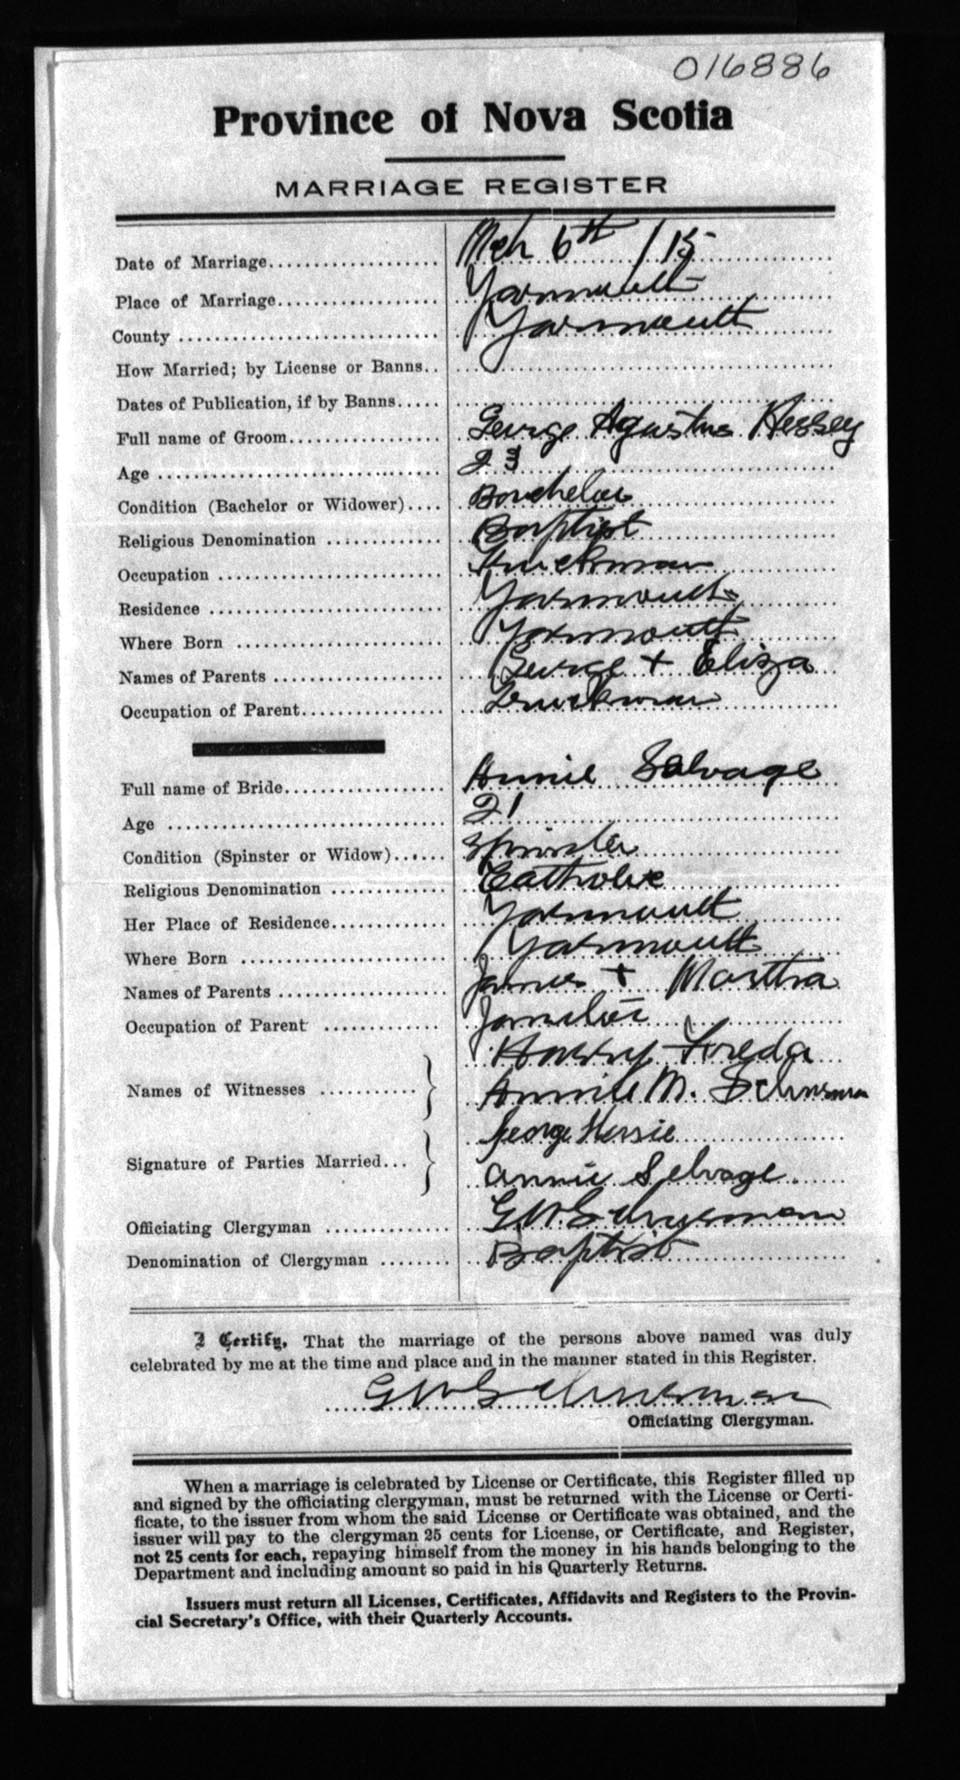 016886
Province of Nova Scotia
MARRIAGE REGISTER
Date of Marriage.................... Mch 6th /15
Place of Marriage................... Yarmouth
County .............................. Yarmouth
How Married; by License or Banns..
Dates of Publication, if by Banns.....
Full name of Groom.................. George Agustus Hessey
Age ................................. 23
Condition (Bachelor or Widower).... Bachelor
Religious Denomination ............. Baptist
Occupation .......................... Truckman
Residence ........................... Yarmouth
Where Born ........................ Yarmouth
Names of Parents ................... George + Eliza
Occupation of Parent................. Truckman
Full name of Bride................... Annie Salvage
Age ................................. 21
Condition (Spinster or Widow)...... Spinster
Religious Denomination ............. Catholic
Her Place of Residence............... Yarmouth
Where Born ........................ Yarmouth
Names of Parents ................... James + Martha
Occupation of Parent .............. Janitor
Harry Freda
Names of Witnesses ........... } Annie M. Schurman
George Hersie
Signature of Parties Married... } Annie Selvage.
Officiating Clergyman .............. GW Schurman
Denomination of Clergyman ........ Baptist
I Certify, That the marriage of the persons above named was duly
celebrated by me at the time and place and in the manner stated in this Register.
GW Schurman
Officiating Clergyman.
When a marriage is celebrated by License or Certificate, this Register filled up
and signed by the officiating clergyman, must be returned with the License or Certi-
ficate, to the issuer from whom the said License or Certificate was obtained, and the
issuer will pay to the clergyman 25 cents for License, or Certificate, and Register,
not 25 cents for each, repaying himself from the money in his hands belonging to the
Department and including amount so paid in his Quarterly Returns.
Issuers must return all Licenses, Certificates, Affidavits and Registers to the Provin-
cial Secretary's Office, with their Quarterly Accounts.